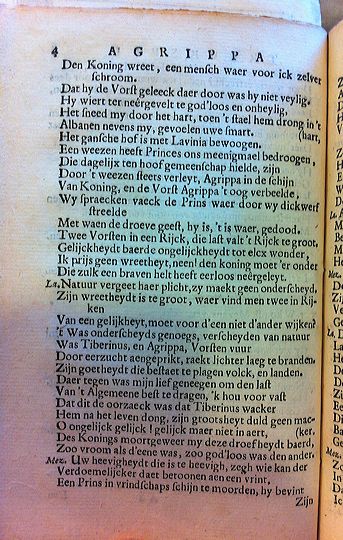 4 AGRIPPA
Den Koning wreet, een mensch waer voor ick zelver
schroom.
Dat hy de Vorst geleeck daer door was hy niet veylig.
Hy wiert ter neêrgevelt te god'loos en onheylig,
Het sneed my door het hart, toen 't stael hem drong in 't
Albanen nevens my, gevoelen uwe smart. (hart,
Het gansche hof is met Lavinia bewoogen.
Een weezen heeft Princes ons meenigmael bedroogen,
Die dagelijx ten hoof gemeenschap hielde, zijn
Door 't weezen steets verleyt, Agrippa in de schijn
Van Koning, en de Vorst Agrippa 't oog verbeelde,
Wy spraecken vaeck de Prins waer door wy dickwerf
streelde
Met waen de droeve geest, hy is, 't is waer, gedood.
Twee Vorsten in een Rijck, die last valt 't Rijck te groot,
Gelijckheydt baerde ongelijckheydt tot elcx wonder,
Ik prijs geen wreetheyt, neen! den koning moet 'er onder
Die zulk een braven helt heeft eerloos neêrgeleyt.
La. Natuur vergeet haer plicht, zy maekt geen onderscheyd.
Zijn wreetheydt is te groot, waer vind men twee in Rij-
ken
Van een gelijkheyt, moet voor d'een niet d'ander wijken?
't Was onderscheyds genoegs, verscheyden van natuur
Was Tiberinus, en Agrippa, Vorsten vuur
Door eerzucht aengeprikt, raekt lichter laeg te branden.
Zijn goetheydt die bestaet te plagen volck, en landen.
Daer tegen was mijn lief geneegen om den last
Van 't Algemeene best te dragen, 'k hou voor vast
Dat dit de oorzaeck was dat Tiberinus wacker
Hem na het leven dong, zijn grootsheyt duld geen mac-
O ongelijck gelijck! gelijck maer niet in aert, (ker,
Des Konings moortgeweer my deze droefheydt baerd,
Zoo vroom als d'eene was, zoo god'loos was den ander.
Mez. Uw heevigheydt die is te heevigh, zegh wie kan der
Verdoemelijcker daet betoonen aen een vrint,
Een Prins in vrindschaps schijn te moorden, hy bevint
Zijn